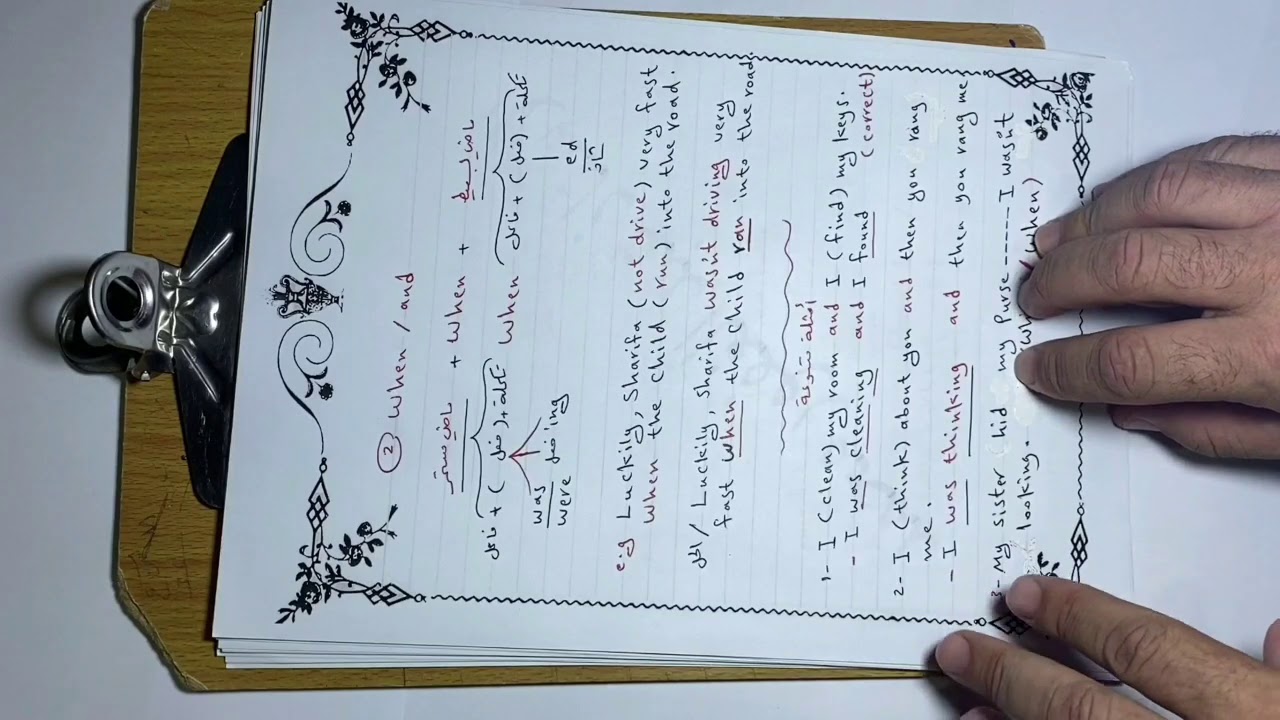 ② When / and
ماضي مستمر + when + ماضي بسيط
فاعل + (فعل) + تكملة when فاعل + (فعل) + تكملة
was فعل ing ed
were شاذ
e.g Luckily, Sharifa (not drive) very fast
when the child (run) into the road.
الحل / Luckily, Sharifa wasn't driving very
fast when the child ran into the road.
أمثلة متنوعة
1- I (clean) my room and I (find) my keys.
- I was cleaning and I found (correct)
2- I (think) about you and then you rang
me.
- I was thinking and then you rang me
3- My sister hid my purse ----- I wasn't
looking. when)